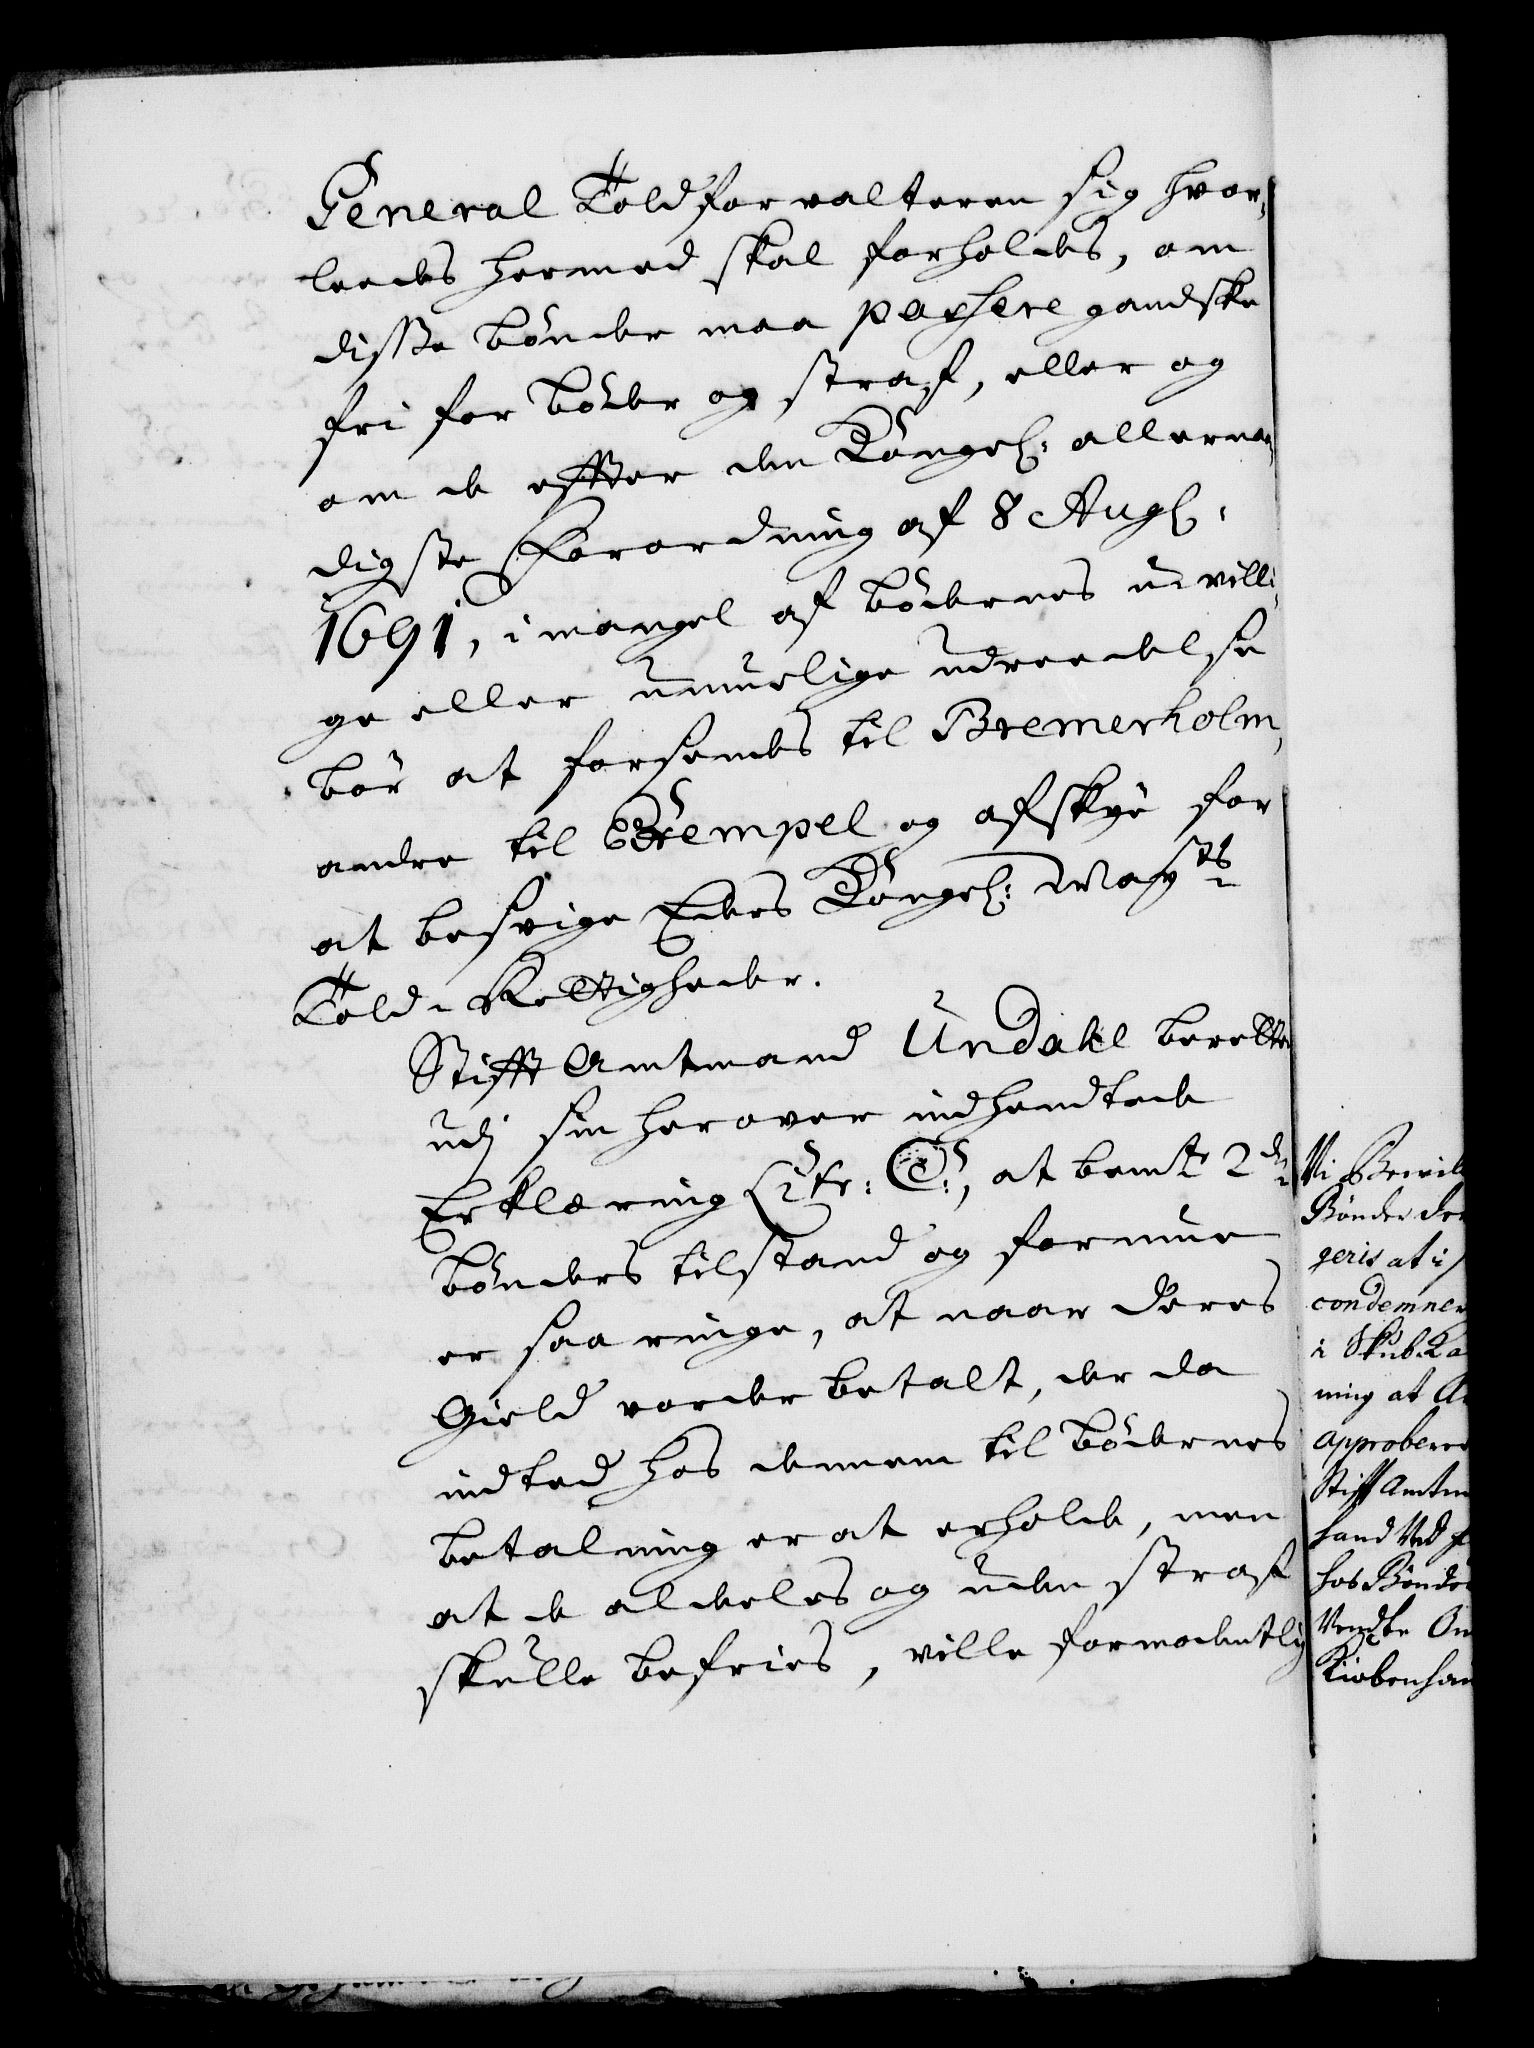 General Toldforvalteren sig hvor,
leedes hermed skal forholdes, om
disse bönder maa passere gandske
fri for böder og straf, eller og
om de effter den Kongel: allernaa,
digste Forordning af 8 Aug:
1691, i mangel af bödernes uvilli,
ge eller umuelige udreedelse
bör at forsendes til Bremerholm,
andre til Exempel og afskye for
at besvige Eders Kongel: Mayts
Told-Rettigheder.
Stifft Amtmand Undahl beretter
udj sin herover indhendtede
Erklæring Litr: C:, at bemte 2de
bönders tilstand og formue
er saa ringe, at naar deres
Gield vorder betalt, der da
indted hos dennem til bödernes
betalning er at erholde, men
at de aldeles og uden straf
skulle befries, ville formodentlig
Vi Bevil
Bönder der
geris at i
condemner
i Skub-Ka
ning at A
approbere
Stift Amtm
hand ved
hos Bönde
Vendte
Kiøbenhav